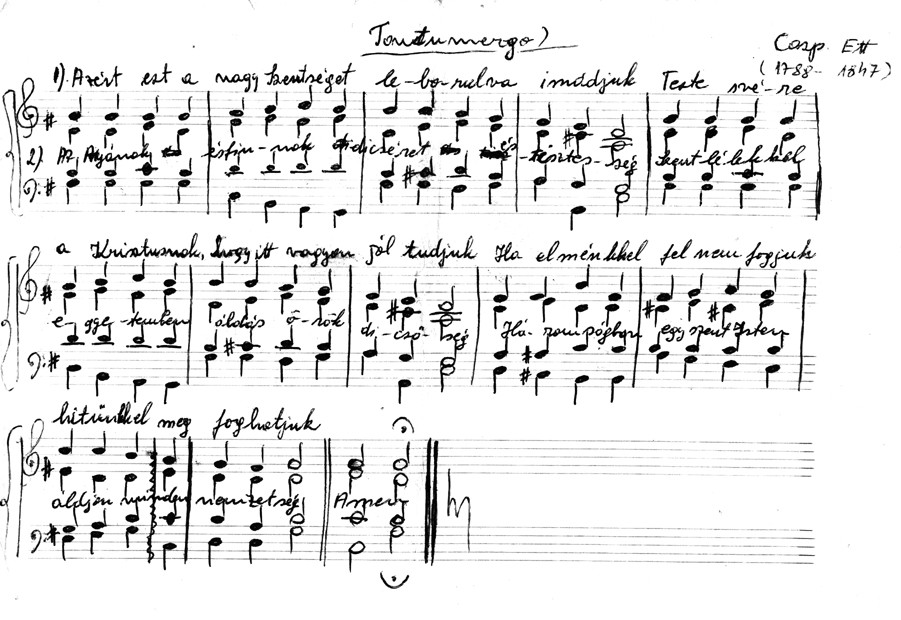 Tantumergo)
Casp. Ett
(1788- 1847)
1). Azért ezt a nagy szentséget le-bo-rulva imádjuk Teste své-re
2). Az Atyának ésfiu-nak didicséret és tisztes-ség szent lélekkel
a Krisztusnak, hogy itt vagyon jól tudjuk Ha elménkkel fel nem fogjuk
e-gye-temben áldás ö-rök di-cső-ség Há-romságban egy szent Isten
hitünkkel meg foghatjuk
áldjon minden nemzetség Amen